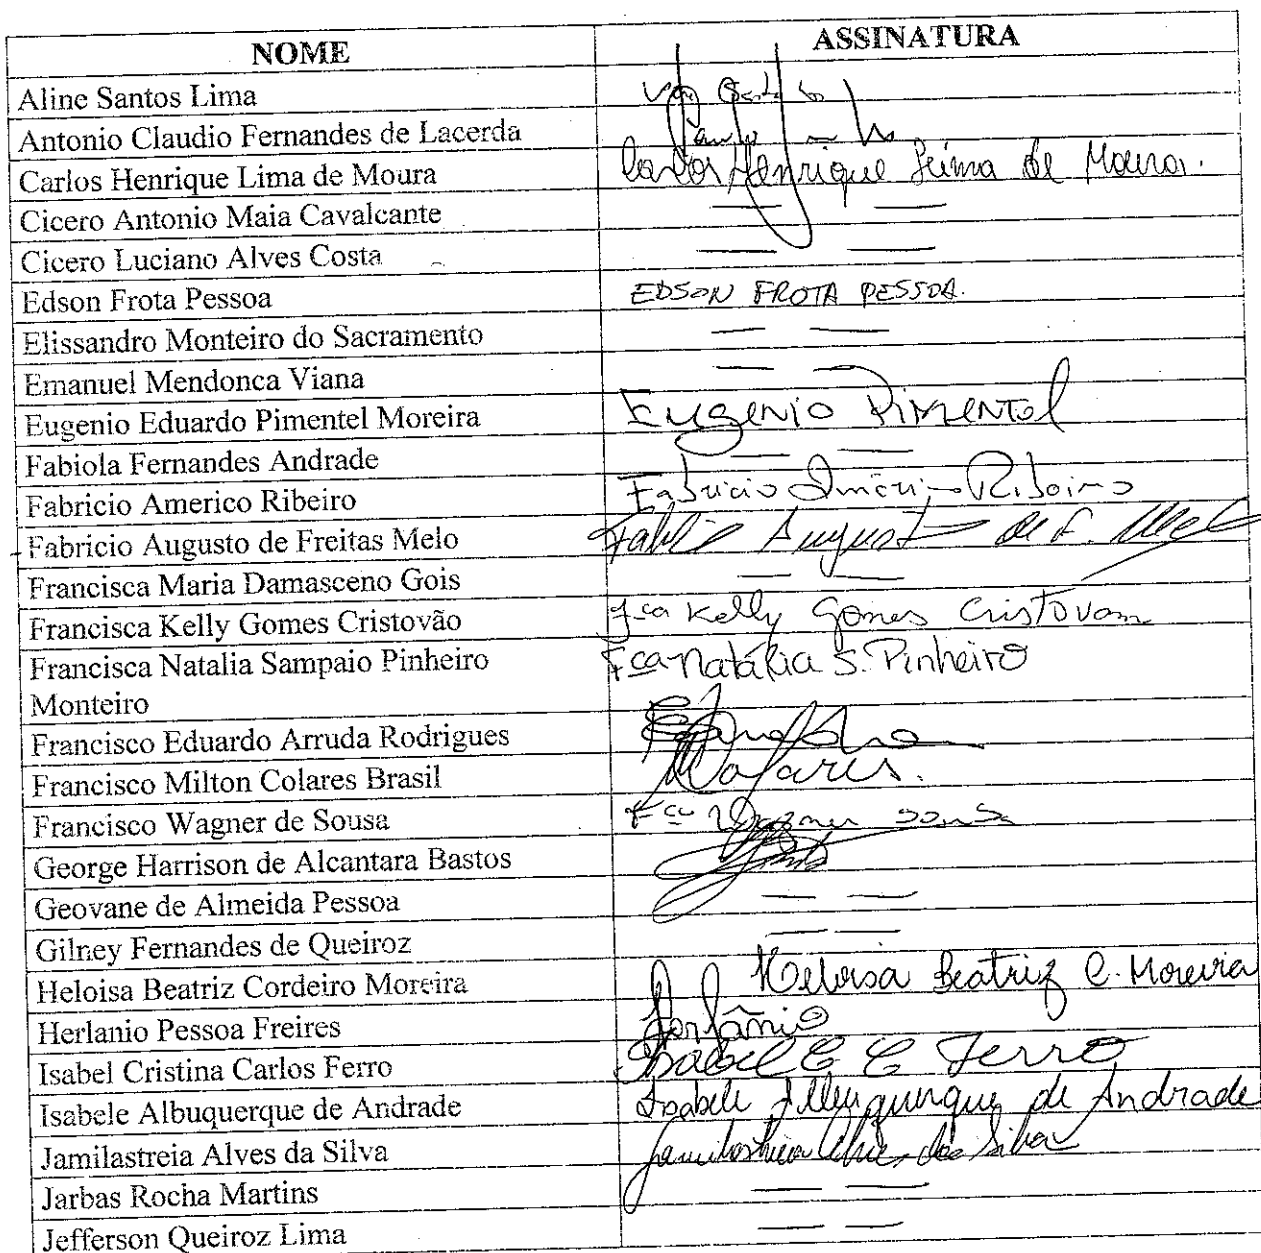 NOME ASSINATURA
Aline Santos Lima
Antonio Claudio Fernandes de Lacerda
Carlos Henrique Lima de Moura Carlos Henrique Leima de Moura.
Cicero Antonio Maia Cavalcante — —
Cicero Luciano Alves Costa — —
Edson Frota Pessoa EDSON FROTA PESSOA.
Elissandro Monteiro do Sacramento — —
Emanuel Mendonca Viana — —
Eugenio Eduardo Pimentel Moreira Eugenio Pimentel
Fabiola Fernandes Andrade — —
Fabricio Americo Ribeiro Fabricio Américo Ribeiro
Fabricio Augusto de Freitas Melo Augusto de F. Melo
Francisca Maria Damasceno Gois — —
Francisca Kelly Gomes Cristovão Fca Kelly Gomes Cristovam
Francisca Natalia Sampaio Pinheiro Fca Natália S. Pinheiro
Monteiro
Francisco Eduardo Arruda Rodrigues
Francisco Milton Colares Brasil Colares.
Francisco Wagner de Sousa Fco Wagner Sousa
George Harrison de Alcantara Bastos
Geovane de Almeida Pessoa — —
Gilney Fernandes de Queiroz — —
Heloisa Beatriz Cordeiro Moreira Heloisa Beatriz C. Moreira
Herlanio Pessoa Freires
Isabel Cristina Carlos Ferro Isabel C C Ferro
Isabele Albuquerque de Andrade Isabele Albuquerque de Andrade
Jamilastreia Alves da Silva Jamilastreia Alves da Silva
Jarbas Rocha Martins — —
Jefferson Queiroz Lima — —